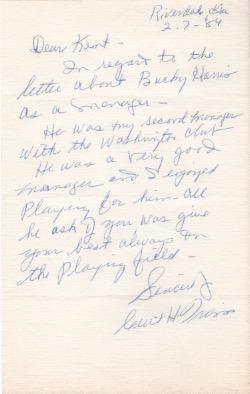 Riverdale, Ga
2-7-'84
Dear Kent -
In regard to the
letter about Bucky Harris
as a manager -
He was my second manager
with the Washington club
He was a very good
manager and I enjoyed
playing for him - All
he ask of you was give
your best always on
the playing field -
Sincerely
Cecil H Travis